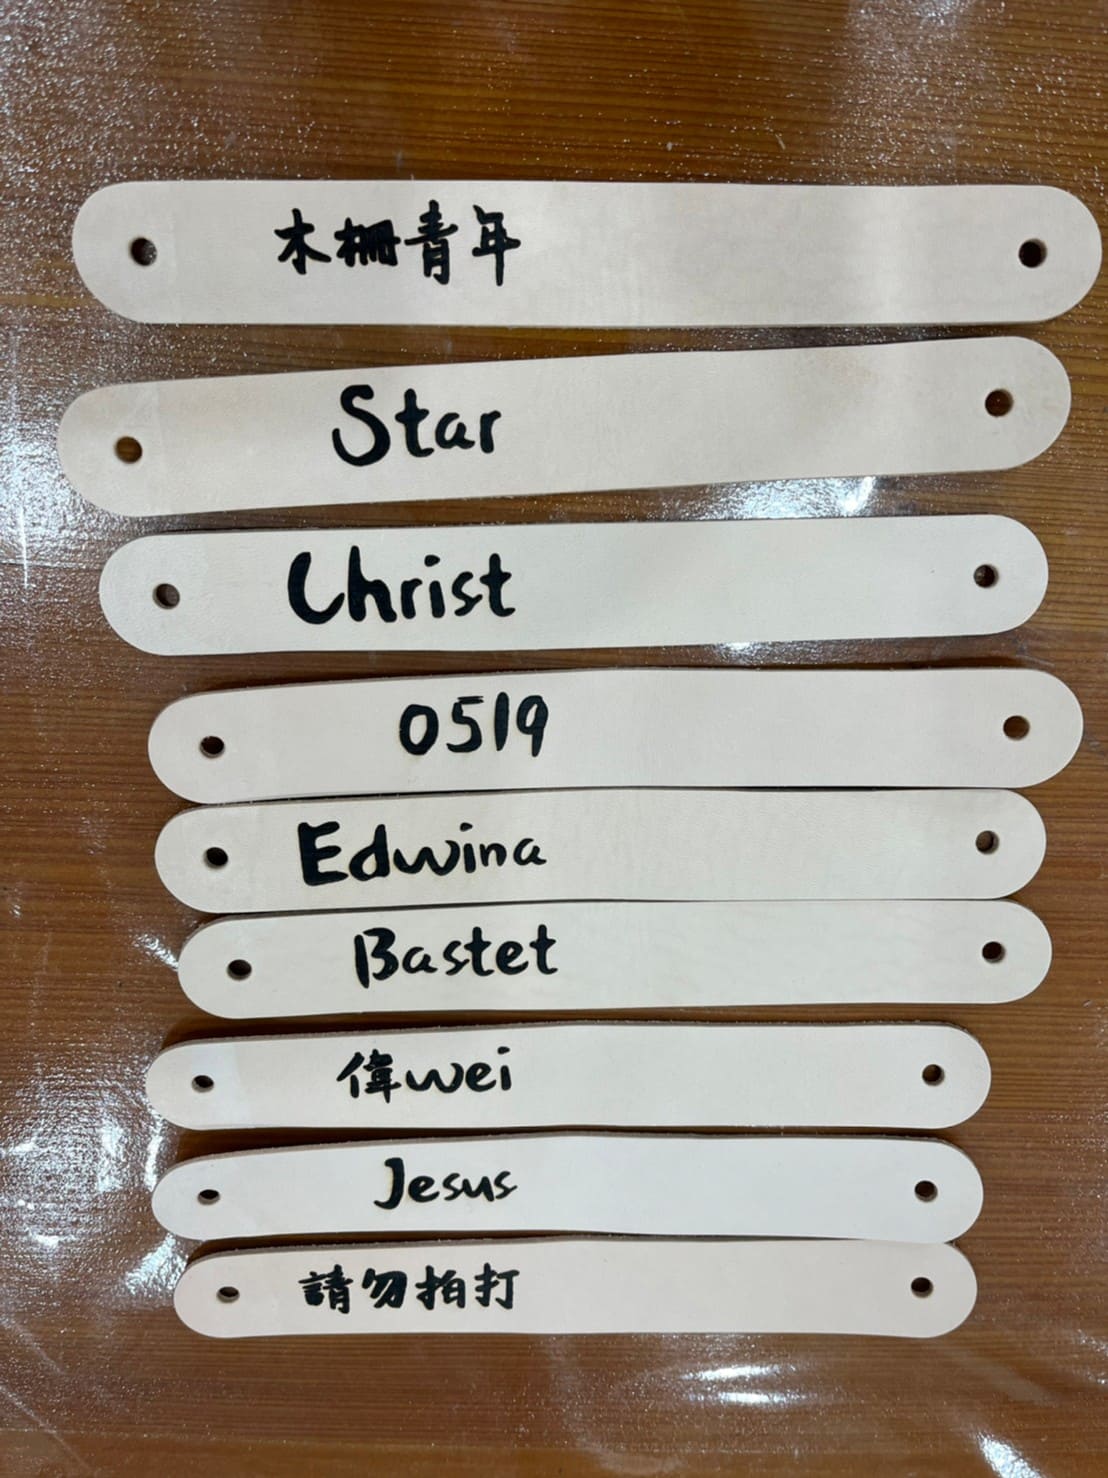 木柵青年
Star
Christ
0519
Edwina
Bastet
偉wei
Jesus
請勿拍打